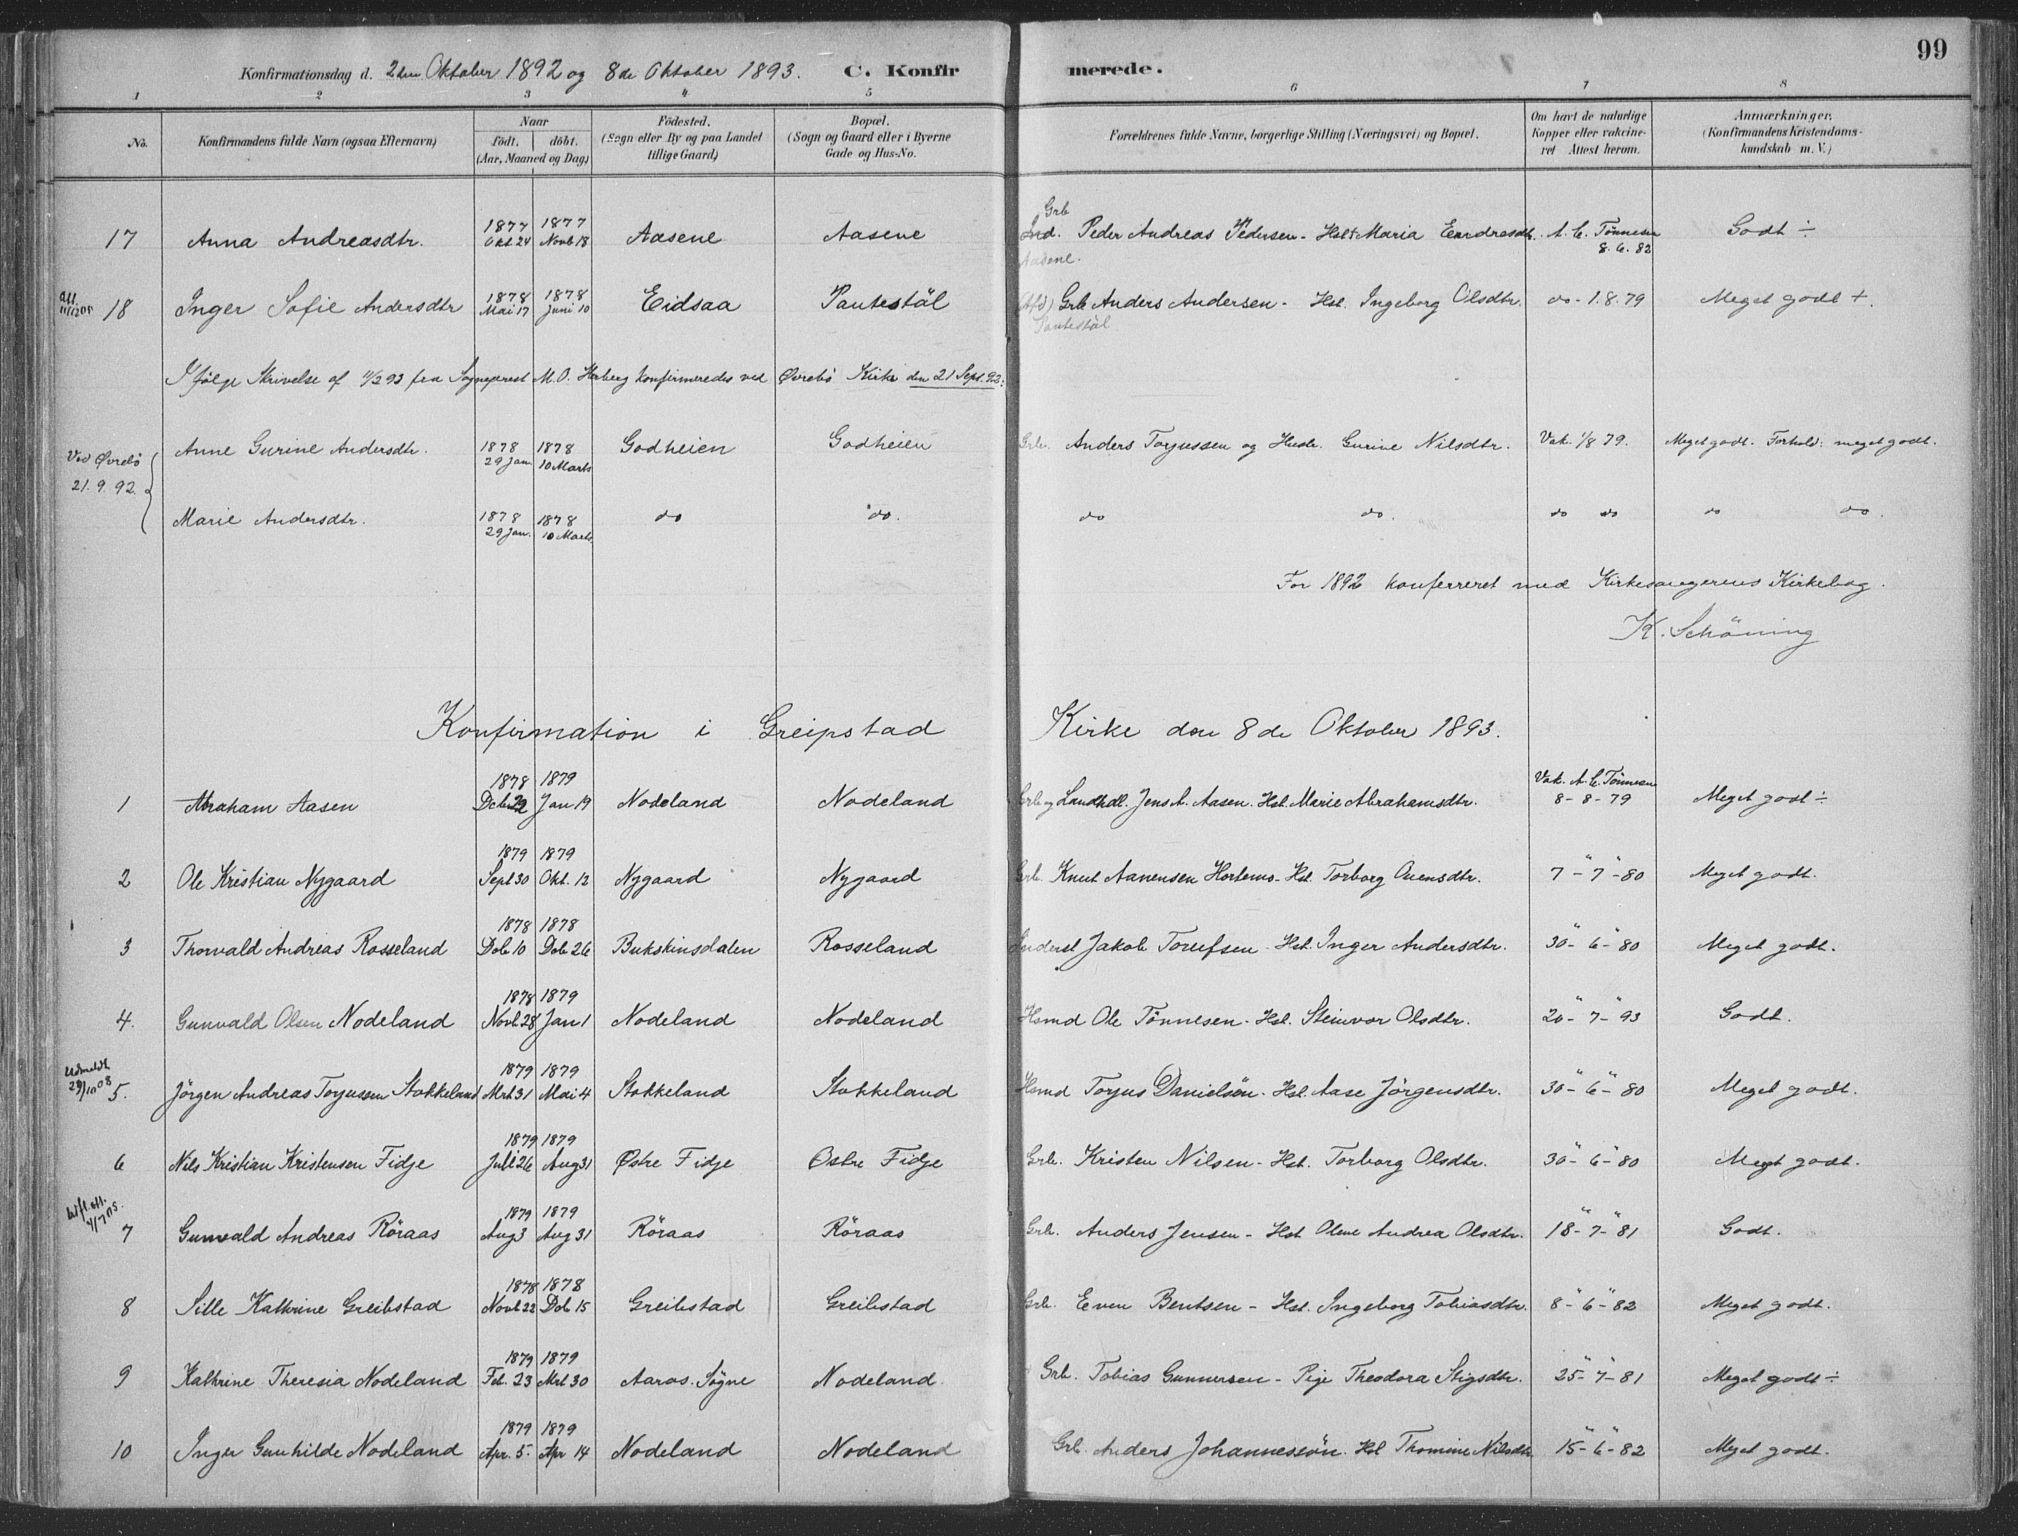 99
Konfirmationsdag d. 2den Oktober 1892 og 8de Oktober 1893. C. Konfirmerede.
1 2 3 4 5 6 7 8
No. Konfirmandens fulde Navn (ogsaa Efternavn) Naar födt. döbt. (Aar, Maaned og Dag) Födested. (Sogn eller By og paa Landet tillige Gaard) Bopæl. (Sogn og Gaard eller i Byerne Gade og Hus-No. Forældrenes fulde Navne, borgerlige Stilling (Næringsvei) og Bopæl. Om havt de naturlige Kopper eller vakcineret Attest herom. Anmærkninger. (Konfirmandens Kristendomskundskab m. V.)
17 Anna Andreasdtr. 1877 Okt. 24 1877 Novb 18 Aasene Aasene Grb Ind. Peder Andreas Pedersen - Hst Maria Endresdtr. A. C. Tönnesen 8. 6. 82 Godt ÷
Aasene.
Att. 11/12 05 18 Inger Sofie Andersdtr 1878 Mai 17 1878 Juni 10 Eidsaa Pantestöl (Afd) Grb Anders Andersen - Hst. Ingeborg Olsdtr. do - 1. 8. 79 Meget godt +.
Pantestöl
Ifölge Skrivelse af 93 fra Sogneprest M. O. konfirmeredes ved Øvrebö Kirke den 21 Sept. 92:
Ved Øvrebö 21. 9. 92. Anne Gurine Andersdtr. 1878 29 Jan. 1878 10 Marts Godheien Godheien Grb. Anders Torjussen og Hustr. Gurine Nilsdtr. Vak. 1/8 79. Meget godt. Forhold: meget godt.
Marie Andersdtr. 1878 29 Jan. 1878 10 Marts do do. do do. do do do do.
For 1892 konfereret med Kirkesangerens Kirkebog.
K. Schöning
Konfirmation i Greipstad Kirke den 8de Oktober 1893.
1 Abraham Aasen 1878 Dcb 22 1879 Jan 19 Nodeland Nodeland Grb og Landhdl. Jens A. Aasen. Hst. Marie Abrahamsdtr. Vak. A. C. Tönnesen 8 - 8 - 79 Meget godt ÷
2 Ole Kristian Nygaard 1879 Sept 30 1879 Okt. 12 Nygaard Nygaard Grb. Knut Aanensen Hortemo - Hst. Torborg Ouensdtr. 7 "- 7 "- 80 Meget godt.
3 Thorvald Andreas Rosseland 1878 Dcb 10 1878 Dcb 26 Bukskinsdalen Rosseland Inderst Jakob Torufsen - Hst. Inger Andersdtr. 30 "- 6 "- 80 Meget godt.
4. Gunvald Olsen Nodeland 1878 Novb. 28 1879 Jan 1 Nodeland Nodeland Hsmd Ole Tönnesen - Hst. Steinvor Olsdtr. 20 "- 7 "- 93 Godt.
Udmeldt 29/10 08 5. Jörgen Andreas Torjussen Stokkeland 1879 Mrt. 31 1879 Mai 4 Stokkeland Stokkeland Hsmd Torjus Danielsön - Hst. Aase Jörgensdtr. 30 "- 6 "- 80 Meget godt.
6 Nils Kristian Kristensen Fidje 1879 Juli 26 1879 Aug 31 Østre Fidje Østre Fidje Grb. Kristen Nilsen - Hst. Torborg Olsdtr. 30 "- 6 "- 80 Meget godt.
7 Gunvald Andreas Röraas 1879 Aug 3 1879 Aug 31 Röraas Röraas Grb. Anders Jensen - Hst Oline Andrea Olsdtr. 18 "- 7 "- 81 Godt.
8 Sille Kathrine Greibstad 1878 Novb. 22 1878 Dcb 15 Greibstad Greibstad Grb. Even Bentsen - Hst. Ingeborg Tobiasdtr. 8 "- 6 "- 82 Meget godt.
9 Kathrine Theresia Nodeland 1879 Feb. 23 1879 Mrt 30 Aaros. Sögne Nodeland Grb. Tobias Gunnersen - Pige Theodora Stigsdtr. 25 "- 7 "- 81 Meget godt ÷
10 Inger Gunhilde Nodeland 1879 Apr. 5. 1879 Apr 14 Nodeland Nodeland Grb. Anders Johannessön. Hst Thomine Nilsdtr 15 "- 6 "- 82 Meget godt.